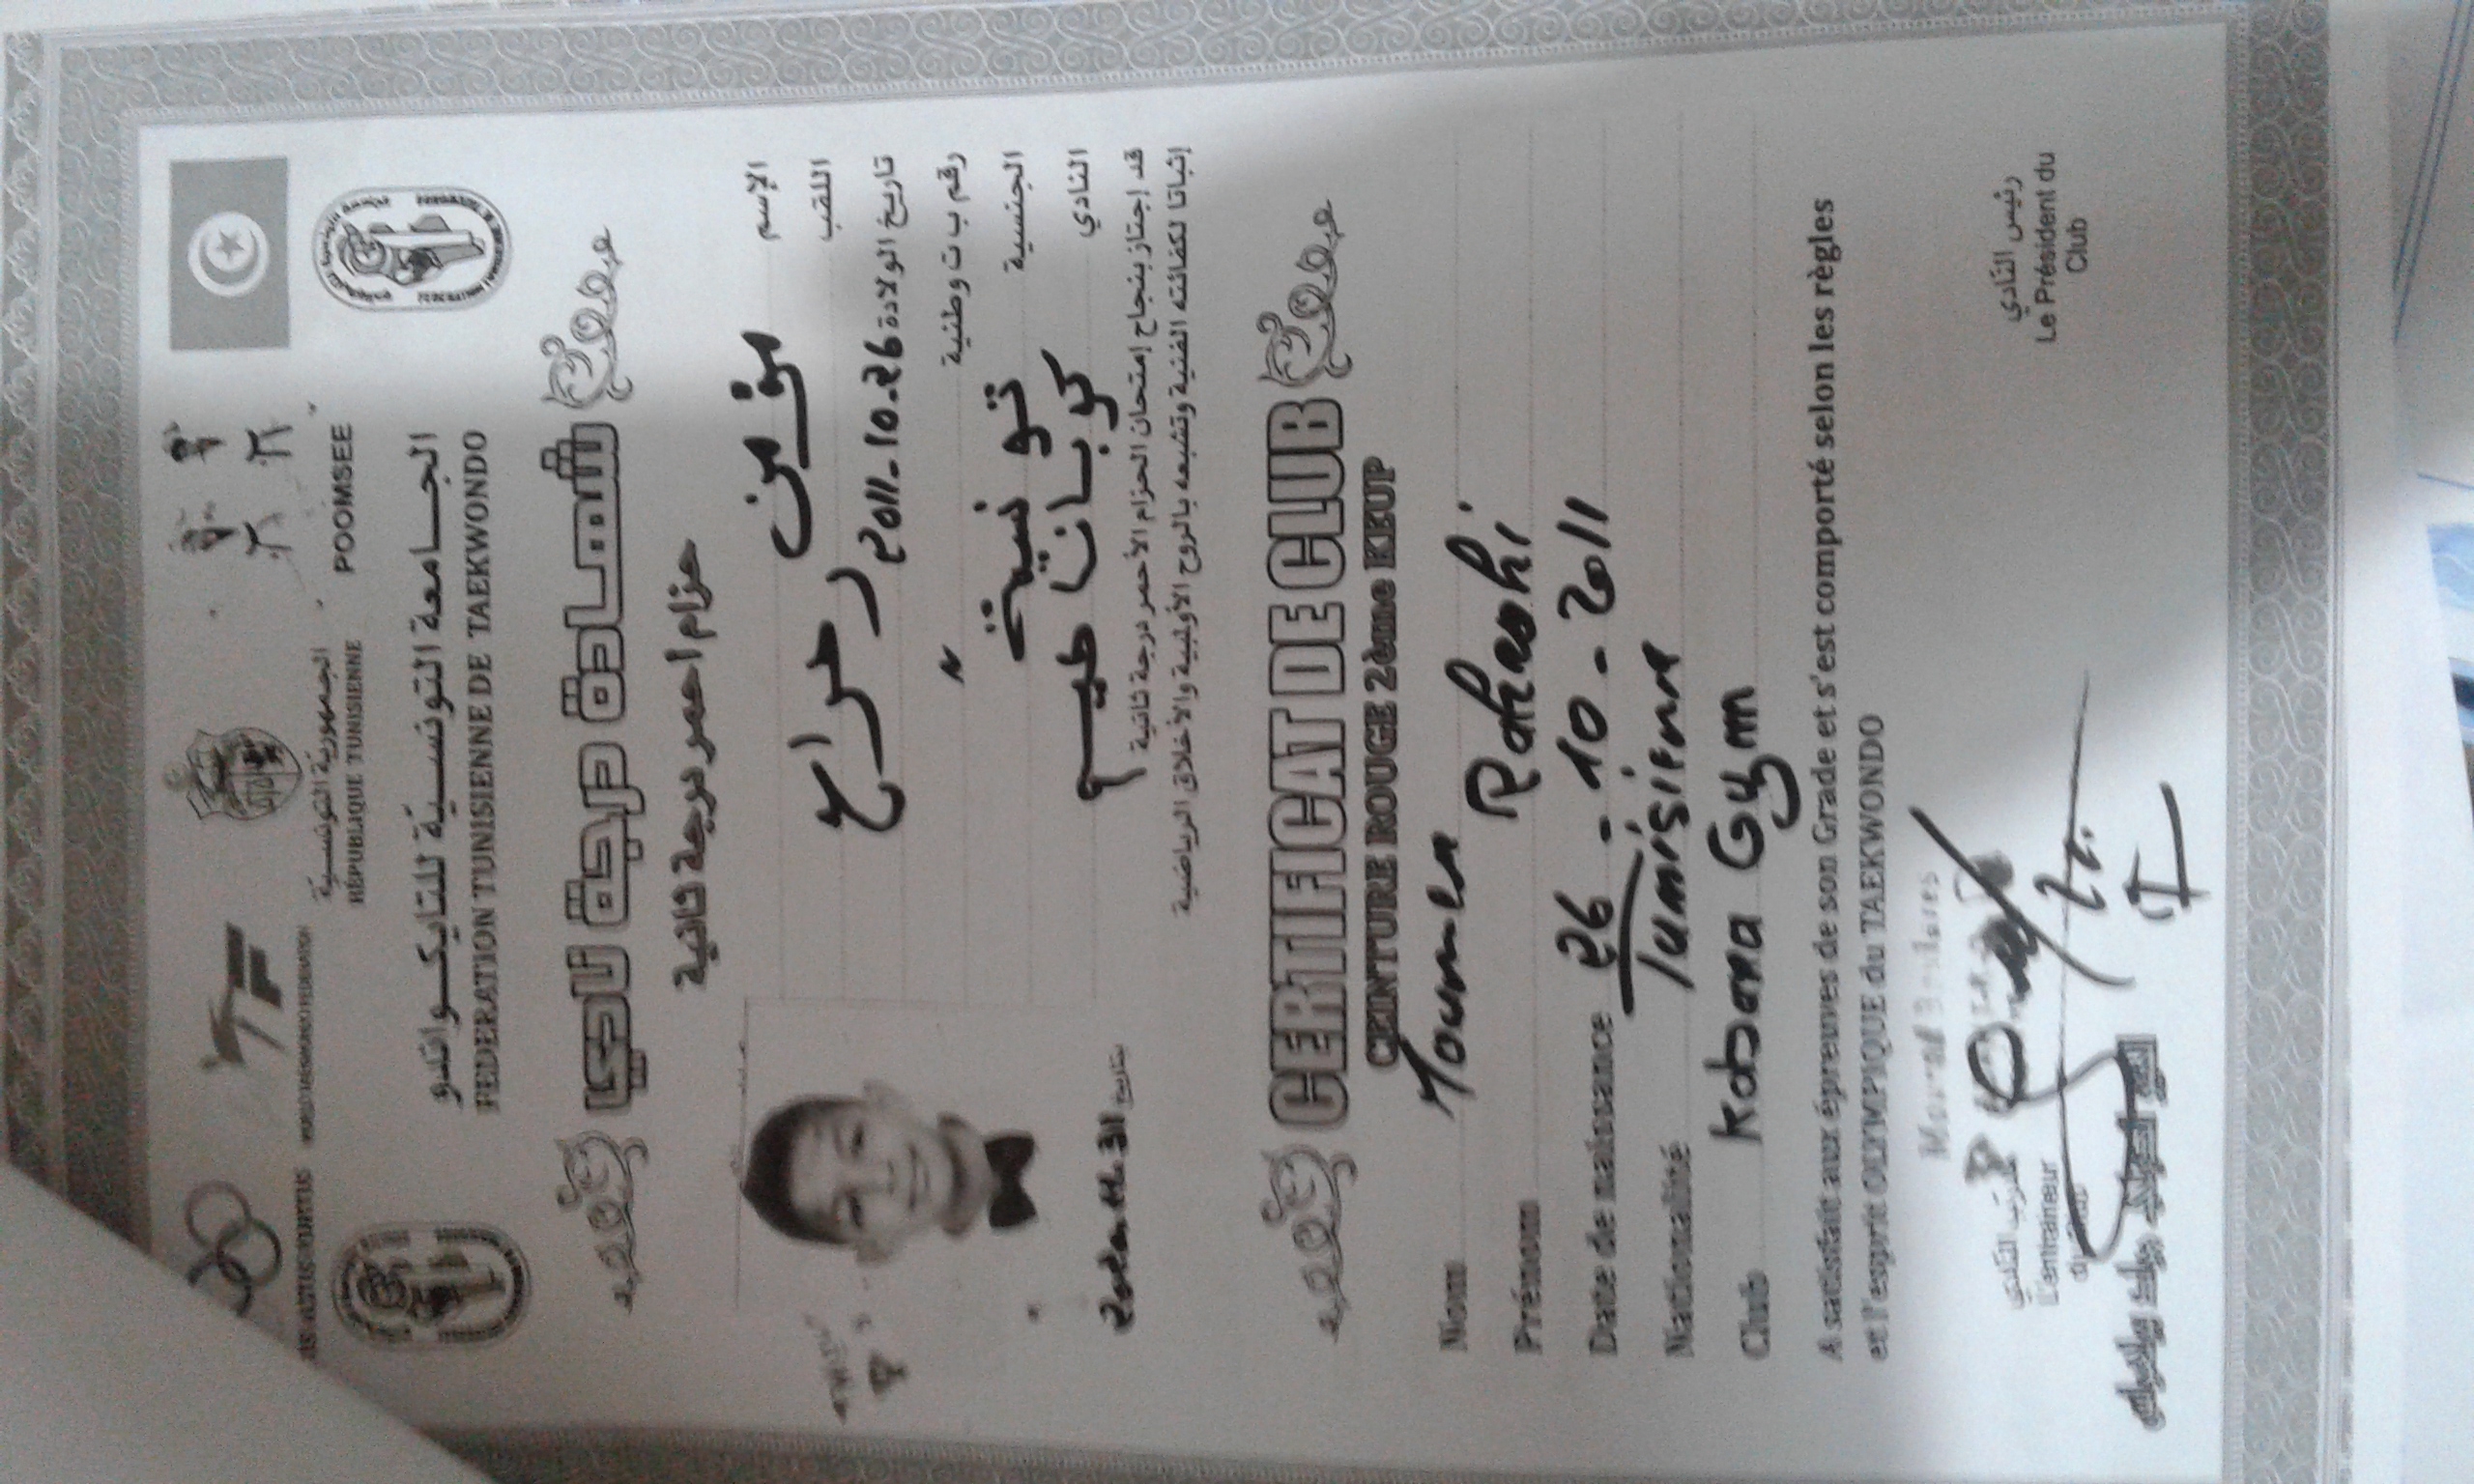 الجمهورية التونسية
REPUBLIQUE TUNISIENNE
POOMSEE
الجامعة التونسية للتايكواندو
FEDERATION TUNISIENNE DE TAEKWONDO
شهادة درجة نادي
حزام احمر درجة ثانية
الإسم
اللقب
تاريخ الولادة 26-10-2011
رقم ب ت وطنية
الجنسية تونسية
النادي كوبانا جيم
قد إجتاز بنجاح إمتحان الحزام الأحمر درجة ثانية
إثباتا لكفائته الفنية وتشبعه بالروح الأولمبية والأخلاق الرياضية
بتاريخ
CERTIFICAT DE CLUB
CEINTURE ROUGE 2ème KEUP
Nom
Prénom
Date de naissance 26-10-2011
Nationalité Tunisienne
Club Kobana Gym
A satisfait aux épreuves de son Grade et s'est comporté selon les règles
et l'esprit OLYMPIQUE du TAEKWONDO
مدرب النادي
L'entraineur
رئيس النادي
Le Président du
Club